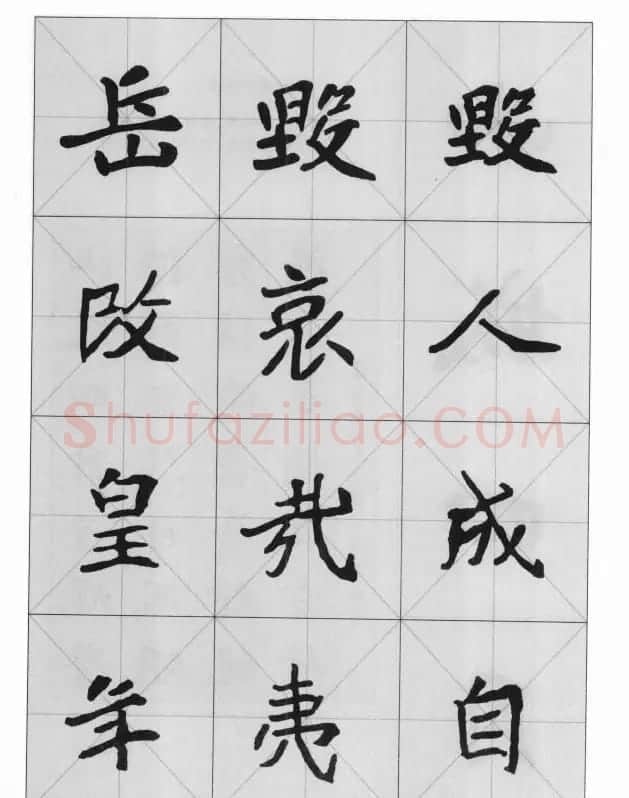 毀人成自
毀哀哉
岳改皇年
Shufaziliao.COM